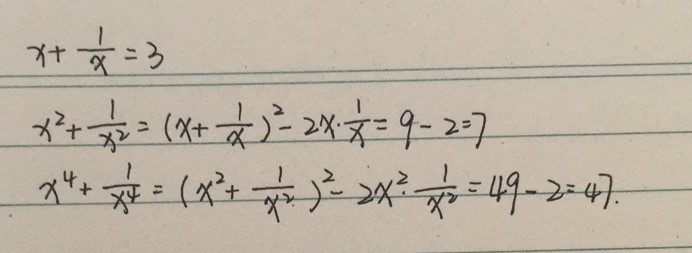 x + 1/x = 3
x² + 1/x² = (x + 1/x)² - 2x·1/x = 9 - 2 = 7
x⁴ + 1/x⁴ = (x² + 1/x²)² - 2x²·1/x² = 49 - 2 = 47.